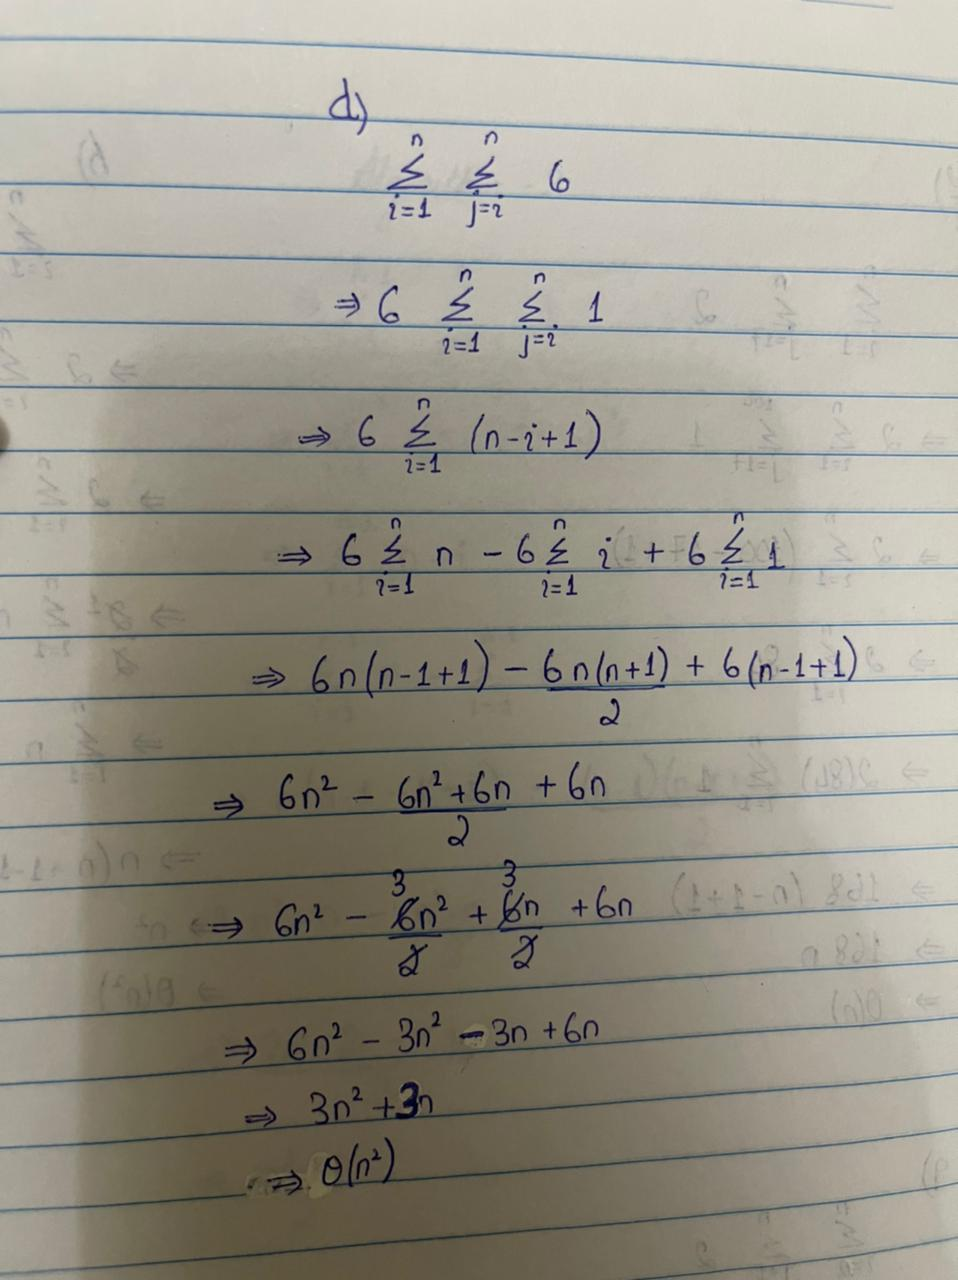 d)
∑_{i=1}^{n} ∑_{j=i}^{n} 6
⇒ 6 ∑_{i=1}^{n} ∑_{j=i}^{n} 1
⇒ 6 ∑_{i=1}^{n} (n-i+1)
⇒ 6 ∑_{i=1}^{n} n - 6 ∑_{i=1}^{n} i + 6 ∑_{i=1}^{n} 1
⇒ 6n(n-1+1) - 6n(n+1)/2 + 6(n-1+1)
⇒ 6n² - (6n²+6n)/2 + 6n
⇒ 6n² - 3 6n²/2 + 3 6n/2 + 6n
⇒ 6n² - 3n² - 3n + 6n
⇒ 3n² + 3n
⇒ θ(n²)